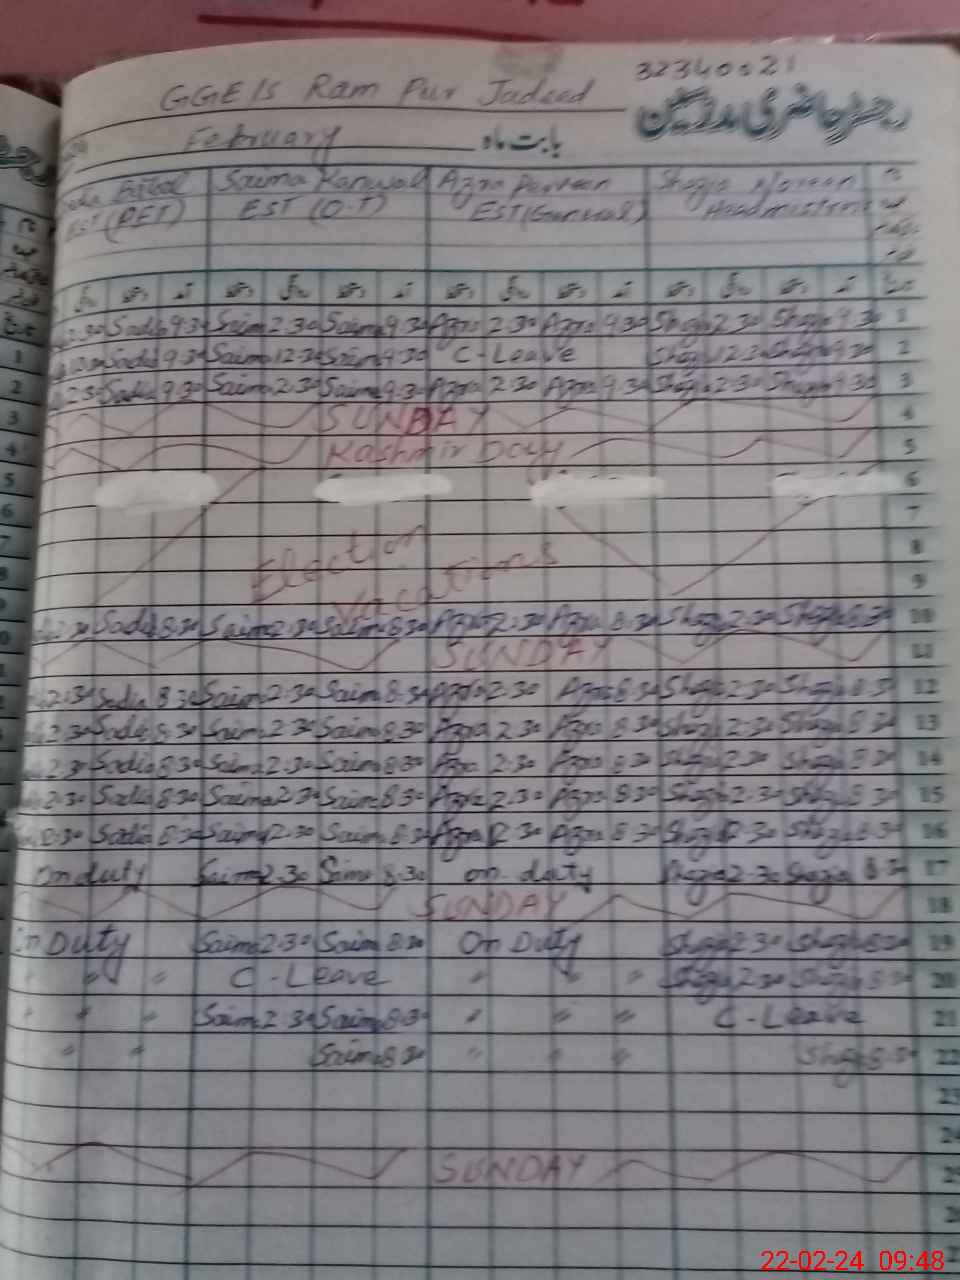 32340021
GGE/S Ram Pur Jadeed
رجسٹر حاضری مدرسین
February بابت ماہ
Saima Kanwal Azra Parveen Shazia Noreen
EST (PET) EST (O.T) EST (General) Headmistress
2:30 Sadia 9:30 Saima 2:30 Saima 9:30 Azra 2:30 Azra 9:30 Shazia 2:30 Shazia 9:30 1
Sadia 9:30 Saima 12:30 Saima 9:30 C-Leave Shazia 12:30 Shazia 9:30 2
2:30 Sadia 9:30 Saima 2:30 Saima 9:30 Azra 2:30 Azra 9:30 Shazia 2:30 Shazia 9:30 3
SUNDAY 4
Kashmir Day 5
6
7
Election 8
Vacations 9
2:30 Sadia 8:30 Saima 2:30 Saima 8:30 Azra 2:30 Azra 8:30 Shazia 2:30 Shazia 8:30 10
SUNDAY 11
2:30 Sadia 8:30 Saima 2:30 Saima 8:30 Azra 2:30 Azra 8:30 Shazia 2:30 Shazia 8:30 12
2:30 Sadia 8:30 Saima 2:30 Saima 8:30 Azra 2:30 Azra 8:30 Shazia 2:30 Shazia 8:30 13
2:30 Sadia 8:30 Saima 2:30 Saima 8:30 Azra 2:30 Azra 8:30 Shazia 2:30 Shazia 8:30 14
2:30 Sadia 8:30 Saima 2:30 Saima 8:30 Azra 2:30 Azra 8:30 Shazia 2:30 Shazia 8:30 15
12:30 Sadia 8:30 Saima 12:30 Saima 8:30 Azra 12:30 Azra 8:30 Shazia 12:30 Shazia 8:30 16
On duty Saima 2:30 Saima 8:30 on duty Shazia 2:30 Shazia 8:30 17
SUNDAY 18
On Duty Saima 2:30 Saima 8:30 On Duty Shazia 2:30 Shazia 8:30 19
" " C-Leave " " " Shazia 2:30 Shazia 8:30 20
" " " Saima 2:30 Saima 8:30 " " " C-Leave 21
" " Saima 8:30 " " " Shazia 8:30 22
23
24
SUNDAY 25
22-02-24 09:48